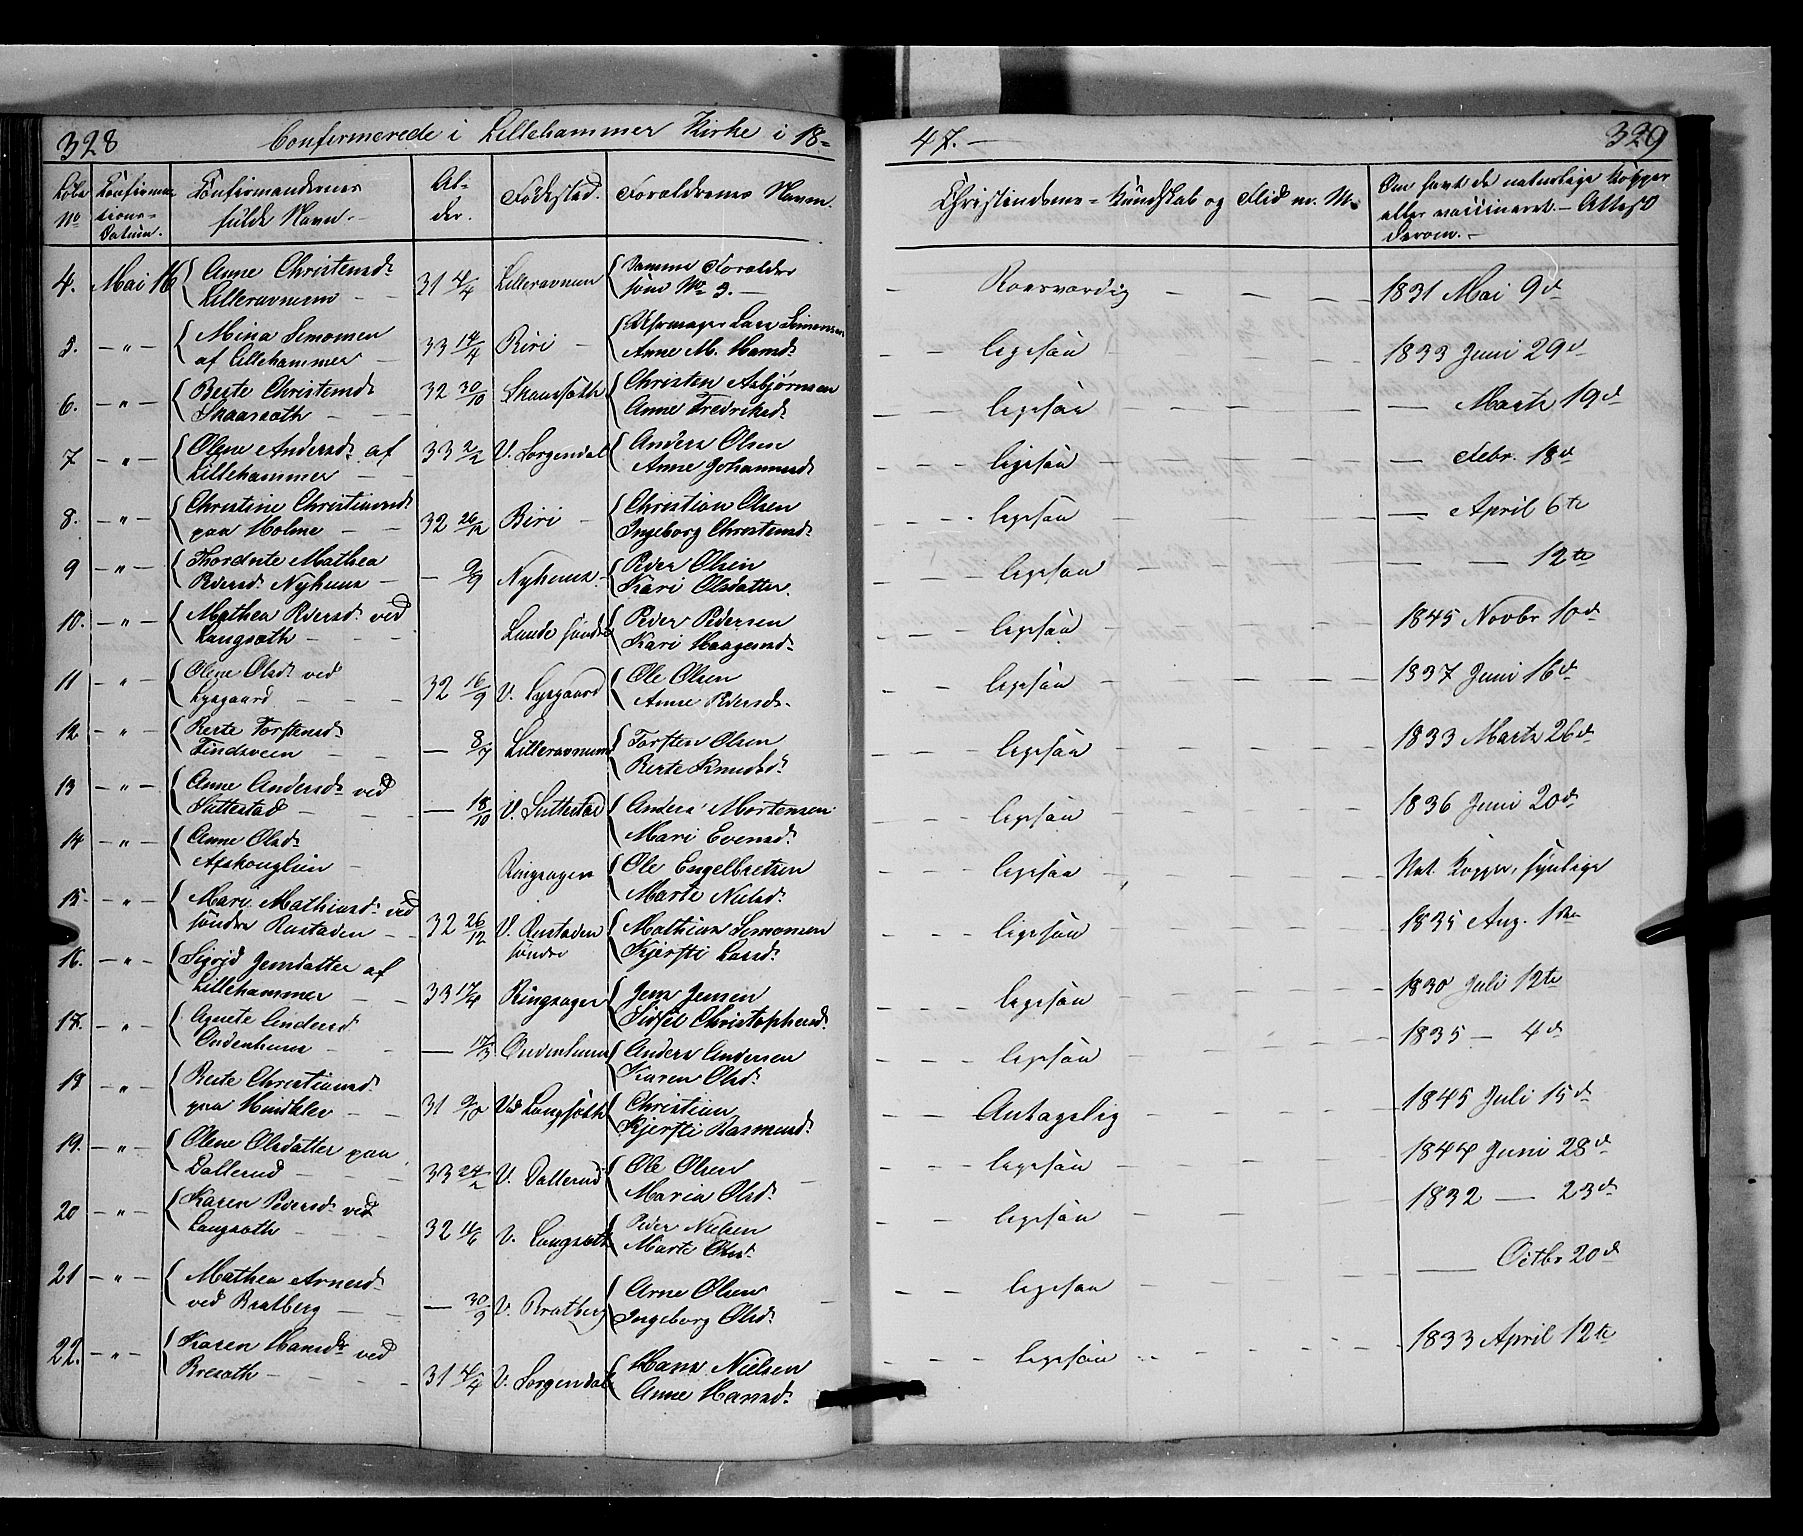 328 Confirmerede i Lillehammer Kirke i 18=
47.- 329
Løbe No
Confirmations-Datum.
Confirmandernes fulde Navn.-
Alder.
Fødested.
Forældrenes Navn.
Christendoms=Kundskab og Flid m. M.
Om havt de naturlige Kopper eller vaccineret.- Attest derom.-
4. Mai 16 Anne Christensd. Lilleravnum - - 31 4/4 Lilleravnum Samme Forælder som No 3. - - Rosværdig - - - 1831 Mai 9d
5. - " - Mina Simonsen af Lillehammer - 33 14/4 Biri - Lars Simonsen Anne M. Hansd. - - ligesaa - - - 1833 Juni 29d
6. - " - Berte Christensd. Skaarsæth - - 32 30/10 Skaarsæth Christen Asbjørnsen Anne Fredriksd. - - ligesaa - - - — Marts 19d
7. - " - Olene Andersd. af Lillehammer - - 33 2/2 V. Sorgendal Anders Olsen Anne Johannesd. - - ligesaa - - - — Febr. 18d
8. - " - Christine Christiansd. paa Holme - - 32 26/12 Biri - Christian Olsen Ingeborg Christensd. - - ligesaa - - - — April 6te
9 - " - Mathea Pedersd. Nyhuus - — 9/9 Nyhuus - Peder Olsen Kari Olsdatter. - - ligesaa - - - — — 12te
10. - " - Mathea Pedersd. ved Langsæth - - Lunde søndre Peder Pedersen Kari Haagensd. - - ligesaa - - - 1845 Novbr 10d
11 - " - Olene Olsd. ved Lysgaard - - 32 16/9 V. Lysgaard Ole Olsen Anne Pedersd. - - ligesaa - - - 1837 Juni 16d
12 - " - Berte Torstensd. Findsveen - - — 8/7 Lilleravnum Torsten Olsen Berte Knudsd. - - ligesaa - - - 1833 Marts 26d
13 - " - Anne Andersd. ved Suttestad - - — 18/10 V. Suttestad Anders Mortensen Mari Evensd. - - ligesaa - - - 1836 Juni 20d
14 - " - Anne Olsd. - Ringsager Ole Engelbretsen Marte Nielsd. - - ligesaa - - - Nat. Kopper, synlige
15. - " - Mari Mathiasd. ved søndre Rustaden - 32 26/12 V. Rustaden søndre Mathias Simonsen Kjersti Larsd. - - ligesaa - - - 1835 Aug. 1ste
16. - " - Sigrid Jensdatter af Lillehammer - - 33 17/4 Ringsager Jens Jensen Sidsel Christophersd. - - ligesaa - - - 1830 Juli 12te
17. - " - Agnete Andersd. Ondenhuus - - — 17/3 Ondenhuus Anders Andersen Karen Olsd. - - ligesaa - - - 1835 — 4d
18 - " - Berte Christiansd. paa - - 31 9/10 Ved Langsæth Christian Kjersti Rasmusd. - - Antagelig - - - 1845 Juli 15d
19. - " - Olene Olsdatter paa Dallerud - - 33 24/2 V. Dallerud Ole Olsen Maria Olsd. - - ligesaa - - - 1844 Juni 28d
20 - " - Karen Pedersd. ved Langsæth - - 32 11/6 V. Langsæth Peder Nielsen Marte Olsd. - - ligesaa - - - 1832 — 23d
21 - " - Mathea Arnesd. ved Bratberg - - — 30/9 V. Bratberg Arne Olsen Ingeborg Olsd. - - ligesaa - - - — Octbr 20d
22. - " - Karen Hansd. ved Bresæth - - 31 4/4 V. Sorgendal Hans Nielsen Anne Hansd. - - ligesaa - - - 1833 April 12te